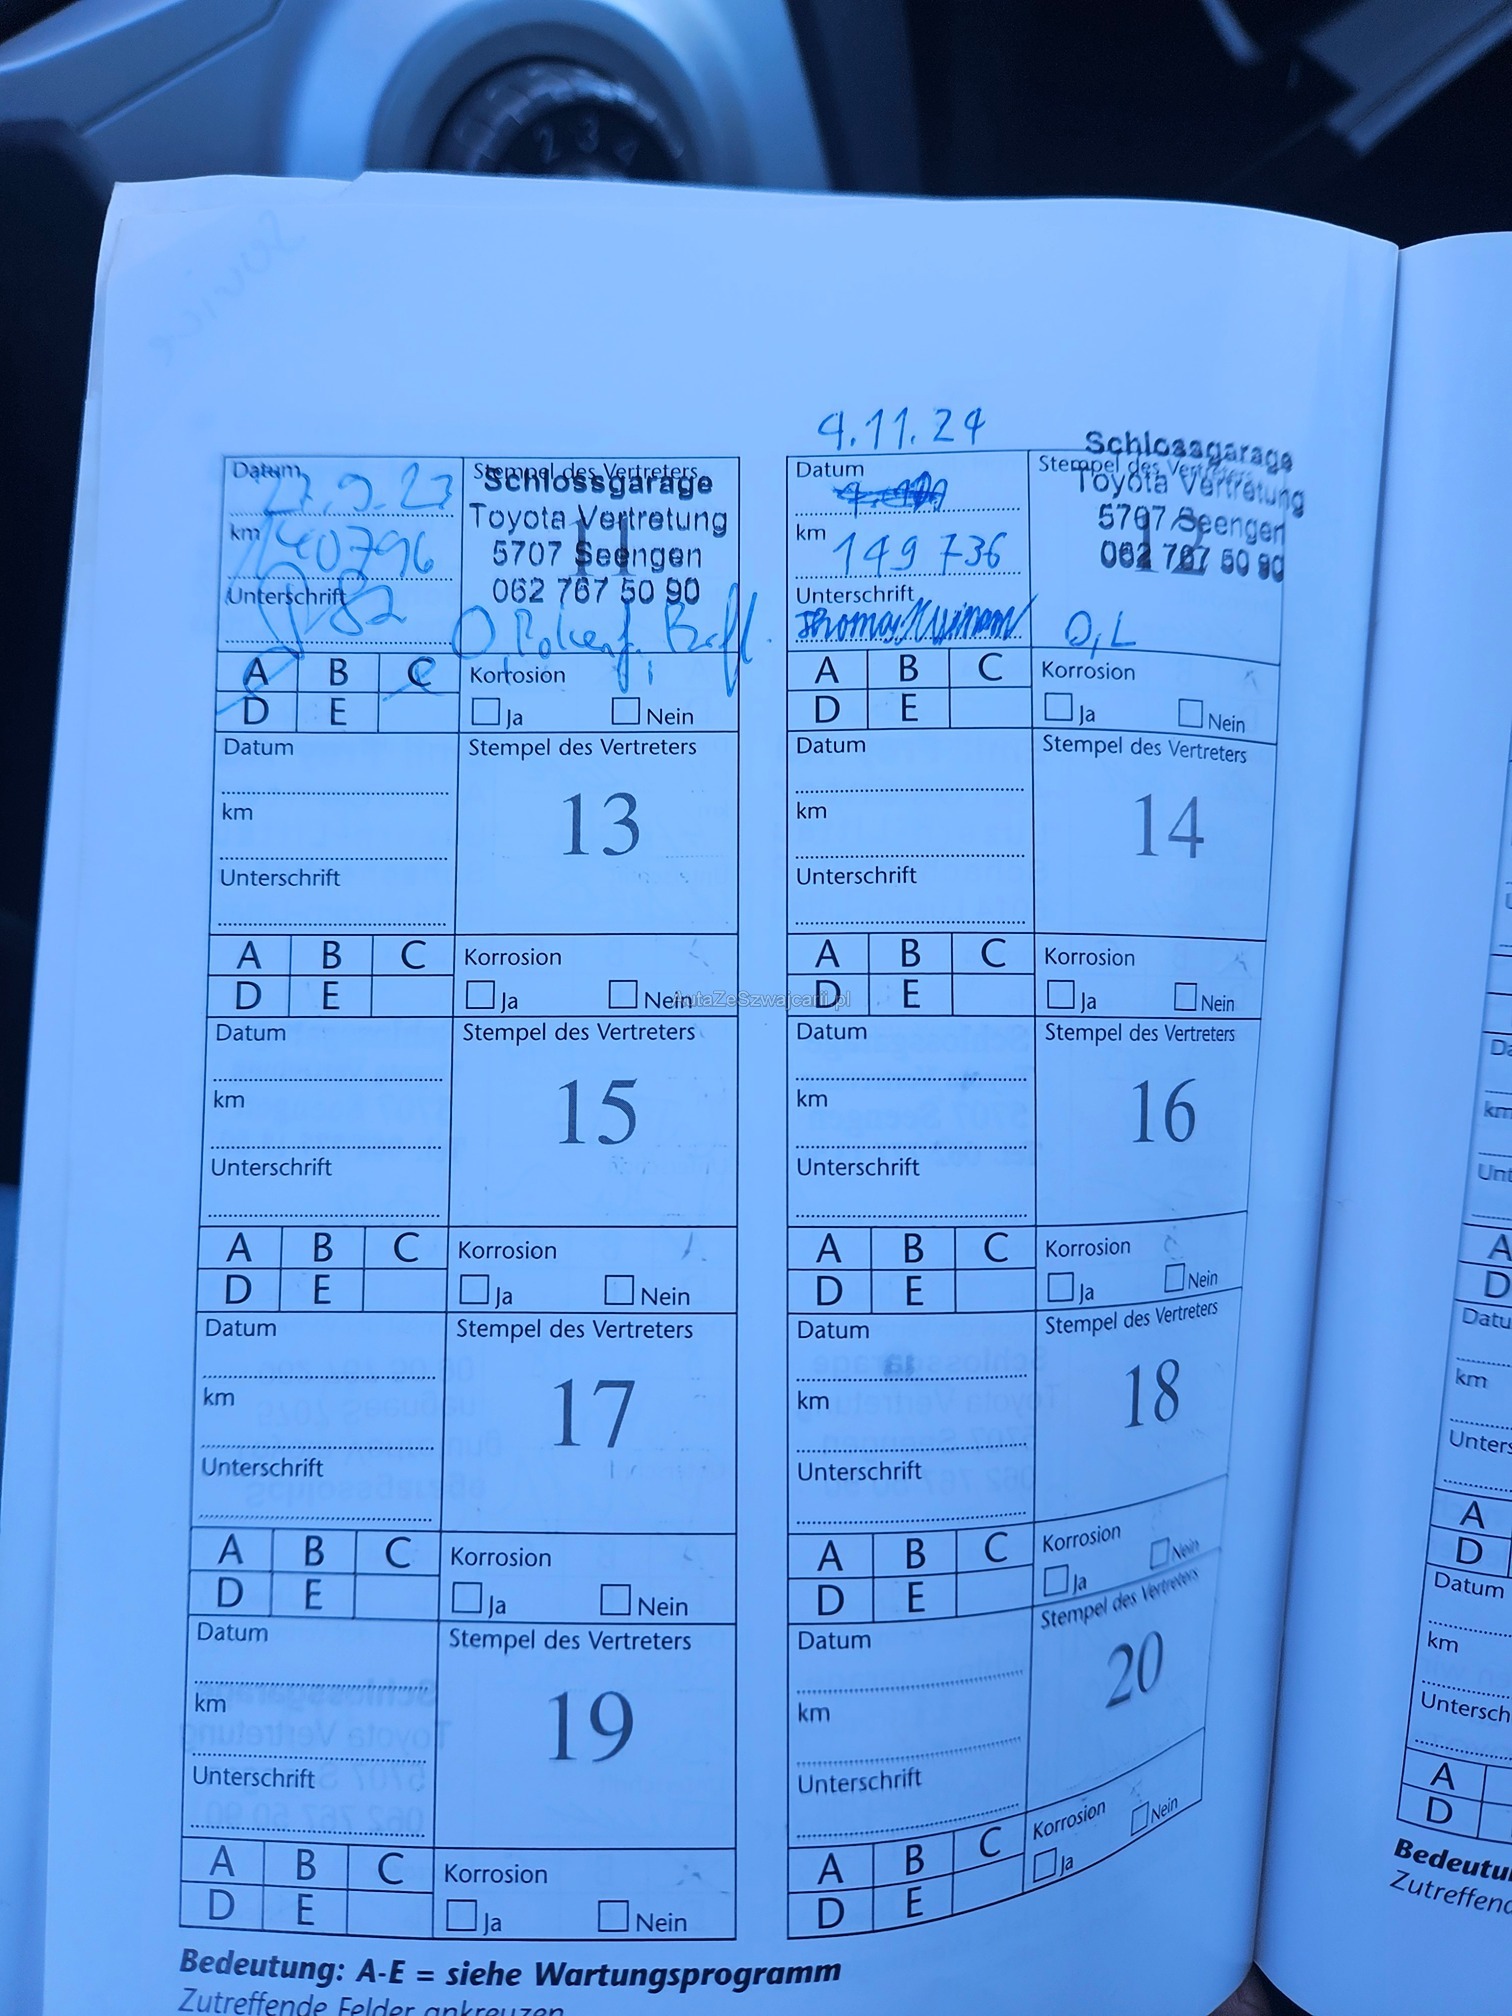 Service
2 3 4
4.11.24
Datum
km
140796
Unterschrift
Stempel des Vertreters
Schlossgarage
Toyota Vertretung
5707 Seengen
062 767 50 90
11
A B C
D E
Korrosion
Ja Nein
Datum
km
149 736
Unterschrift
Stempel des Vertreters
Schlossgarage
Toyota Vertretung
5707 Seengen
062 767 50 90
12
O,L
A B C
D E
Korrosion
Ja Nein
Datum
km
Unterschrift
Stempel des Vertreters
13
A B C
D E
Korrosion
Ja Nein
Datum
km
Unterschrift
Stempel des Vertreters
14
A B C
D E
Korrosion
Ja Nein
AutaZeSzwajcarii.pl
Datum
km
Unterschrift
Stempel des Vertreters
15
A B C
D E
Korrosion
Ja Nein
Datum
km
Unterschrift
Stempel des Vertreters
16
A B C
D E
Korrosion
Ja Nein
Datum
km
Unterschrift
Stempel des Vertreters
17
A B C
D E
Korrosion
Ja Nein
Datum
km
Unterschrift
Stempel des Vertreters
18
A B C
D E
Korrosion
Ja Nein
Datum
km
Unterschrift
Stempel des Vertreters
19
A B C
D E
Korrosion
Ja Nein
Datum
km
Unterschrift
Stempel des Vertreters
20
A B C
D E
Korrosion
Ja Nein
Bedeutung: A-E = siehe Wartungsprogramm
Zutreffende Felder ankreuzen
km
A
D
Datum
km
A
D
Datum
km
A
D